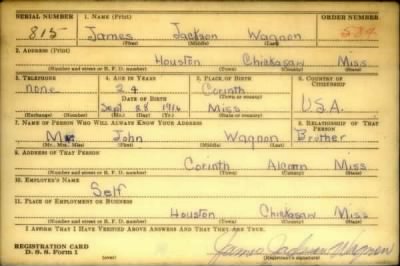 SERIAL NUMBER 1. NAME (Print) ORDER NUMBER
815 James Jackson Wagnon
(First) (Middle) (Last)
2. ADDRESS (Print)
Houston Chickasaw Miss
(Number and street or R. F. D. number) (Town) (County) (State)
3. TELEPHONE 4. AGE IN YEARS 5. PLACE OF BIRTH 6. COUNTRY OF CITIZENSHIP
none 24 Corinth
DATE OF BIRTH (Town or county)
Sept 1916 Miss U.S.A.
(Exchange) (Number) (Mo.) (Day) (Yr.) (State or country)
7. NAME OF PERSON WHO WILL ALWAYS KNOW YOUR ADDRESS 8. RELATIONSHIP OF THAT PERSON
Mr. John Wagnon Brother
(Mr., Mrs., Miss) (First) (Middle) (Last)
9. ADDRESS OF THAT PERSON
Corinth Alcorn Miss
(Number and street or R. F. D. number) (Town) (County) (State)
10. EMPLOYER'S NAME
Self
11. PLACE OF EMPLOYMENT OR BUSINESS
Houston Chickasaw Miss
(Number and street or R. F. D. number) (Town) (County) (State)
I AFFIRM THAT I HAVE VERIFIED ABOVE ANSWERS AND THAT THEY ARE TRUE.
REGISTRATION CARD
D. S. S. Form 1 James Jackson Wagnon
(Registrant's signature)